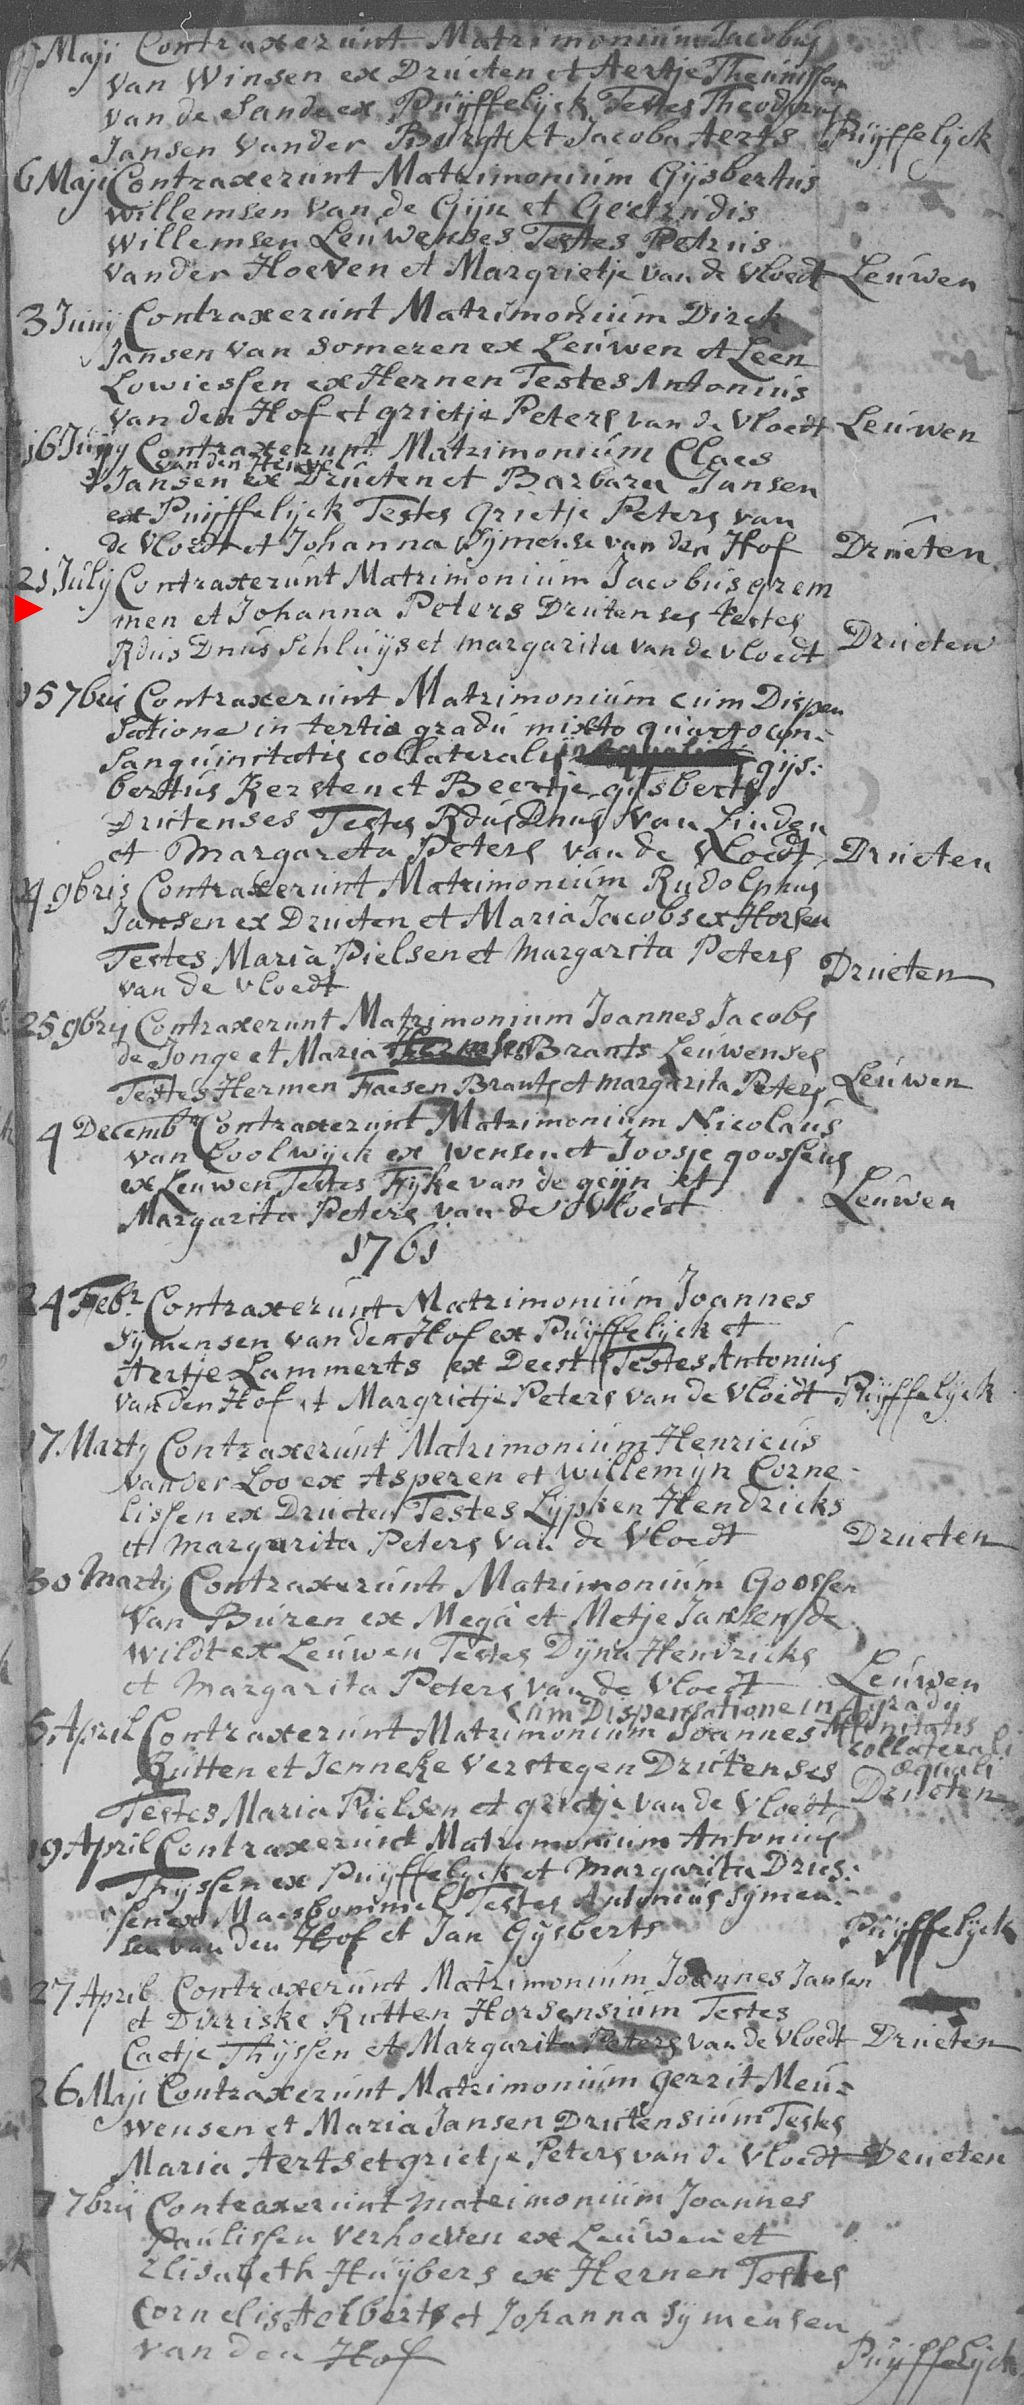 Maji Contraxerunt Matrimonium Jacobus
van Winsen ex Druten et Aertje Theunissen
van de Sande ex Puijffelijck Testes Theodorus
Jansen Vander Burgt et Jacoba Aerts Puijffelijck
6 Maji Contraxerunt Matrimonium Gijsbertus
willemsen Van de Gijn et Geertrudis
Willemsen Leuwenses Testes Petrus
vander Hoeven et Margrietje van de Vloedt Leuwen
3 Junij Contraxerunt Matrimonium Dirck
Jansen van Someren ex Leuwen et Leen
Lowiessen ex Hernen Testes Antonius
van den Hof et grietje Peters van de Vloedt Leuwen
16 Junij Contraxerunt Matrimonium Claes
van den Heuvel
Jansen ex Drueten et Barbara Jansen
ex Puijffelijck Testes Grietje Peters van
de Vloedt et Johanna Sijmense van den Hof Drueten
21 July Contraxerunt Matrimonium Jacobus grem
men et Johanna Peters Drutenses testes
Rdus Dnus Schluijs et margarita van de vloedt Drueten
15 7bris Contraxerunt Matrimonium cum Dispen
satione in tertio gradu mixto quarto con-
sanguinitatis collateralis gijs:
bertus Kersten et Beertje gijsberts
Drutenses Testes Rdus Dnus Van Linden
et Margareta Peters van de Vloedt Drueten
4 9bris Contraxerunt Matrimonium Rudolphus
Jansen ex Drueten et Maria Jacobs ex Horsen
Testes Maria Pielsen et Margarita Peters Drueten
van de vloedt
25 9bris Contraxerunt Matrimonium Joannes Jacobs
de Jonge et Maria Brants Leuwenses
Testes Hermen Faesen Brants et margarita Peters Leuwen
4 Decembr Contraxerunt Matrimonium Nicolaus
van Coolwijck ex wensen et Joosje goossens
ex Leuwen Testes Fijke van de geijn et Leuwen
Margarita Peters van de Vloedt
1761
24 Febr Contraxerunt Matrimonium Joannes
Sijmensen van den Hof ex Puijffelijck et
Aertje Lammerts ex Deest Testes Antonius
van den Hof et Margrietje Peters van de Vloedt Puijffelijck
17 Martij Contraxerunt Matrimonium Henricus
vander Loo ex Asperen et Willemijn Corne-
lissen ex Drueten Testes Lijpken Hendricks
et Margarita Peters Van de Vloedt Drueten
30 Martij Contraxerunt Matrimonium Goossen
Van Buren ex Mega et Metje Jansen de
Wildt ex Leuwen Testes Dijna Hendricks
et Margarita Peters van de Vloedt Leuwen
cum Dispensatione in 4 gradu
5 April Contraxerunt Matrimonium Joannes Affinitatis
collaterali
Rutten et Jenneke verstegen Drutenses æquali
Testes Maria Pielsen et grietje van de Vloedt Drueten
19 April Contraxerunt Matrimonium Antonius
Thijssen ex Puijffelijck et Margarita Dries:
sen ex Maesbommel Testes Antonius Sijmen-
sen van den Hof et Jan Gijsberts Puijffelijck
27 April Contraxerunt Matrimonium Joannes Jansen
et Dirriske Rutten Horsensium Testes
Caetje Thijssen et Margarita Peters van de Vloedt Drueten
26 Maji Contraxerunt Matrimonium gerrit Meu-
wensen et Maria Jansen Drutensium Testes
Maria Aerts et grietje Peters van de Vloedt Drueten
7 7bris Contraxerunt Matrimonium Joannes
Paulissen Verhoeven ex Leuwen et
Elisabeth Huijbers ex Hernen Testes
Cornelis Aelberts et Johanna Sijmensen
van den Hof Puijffelijck